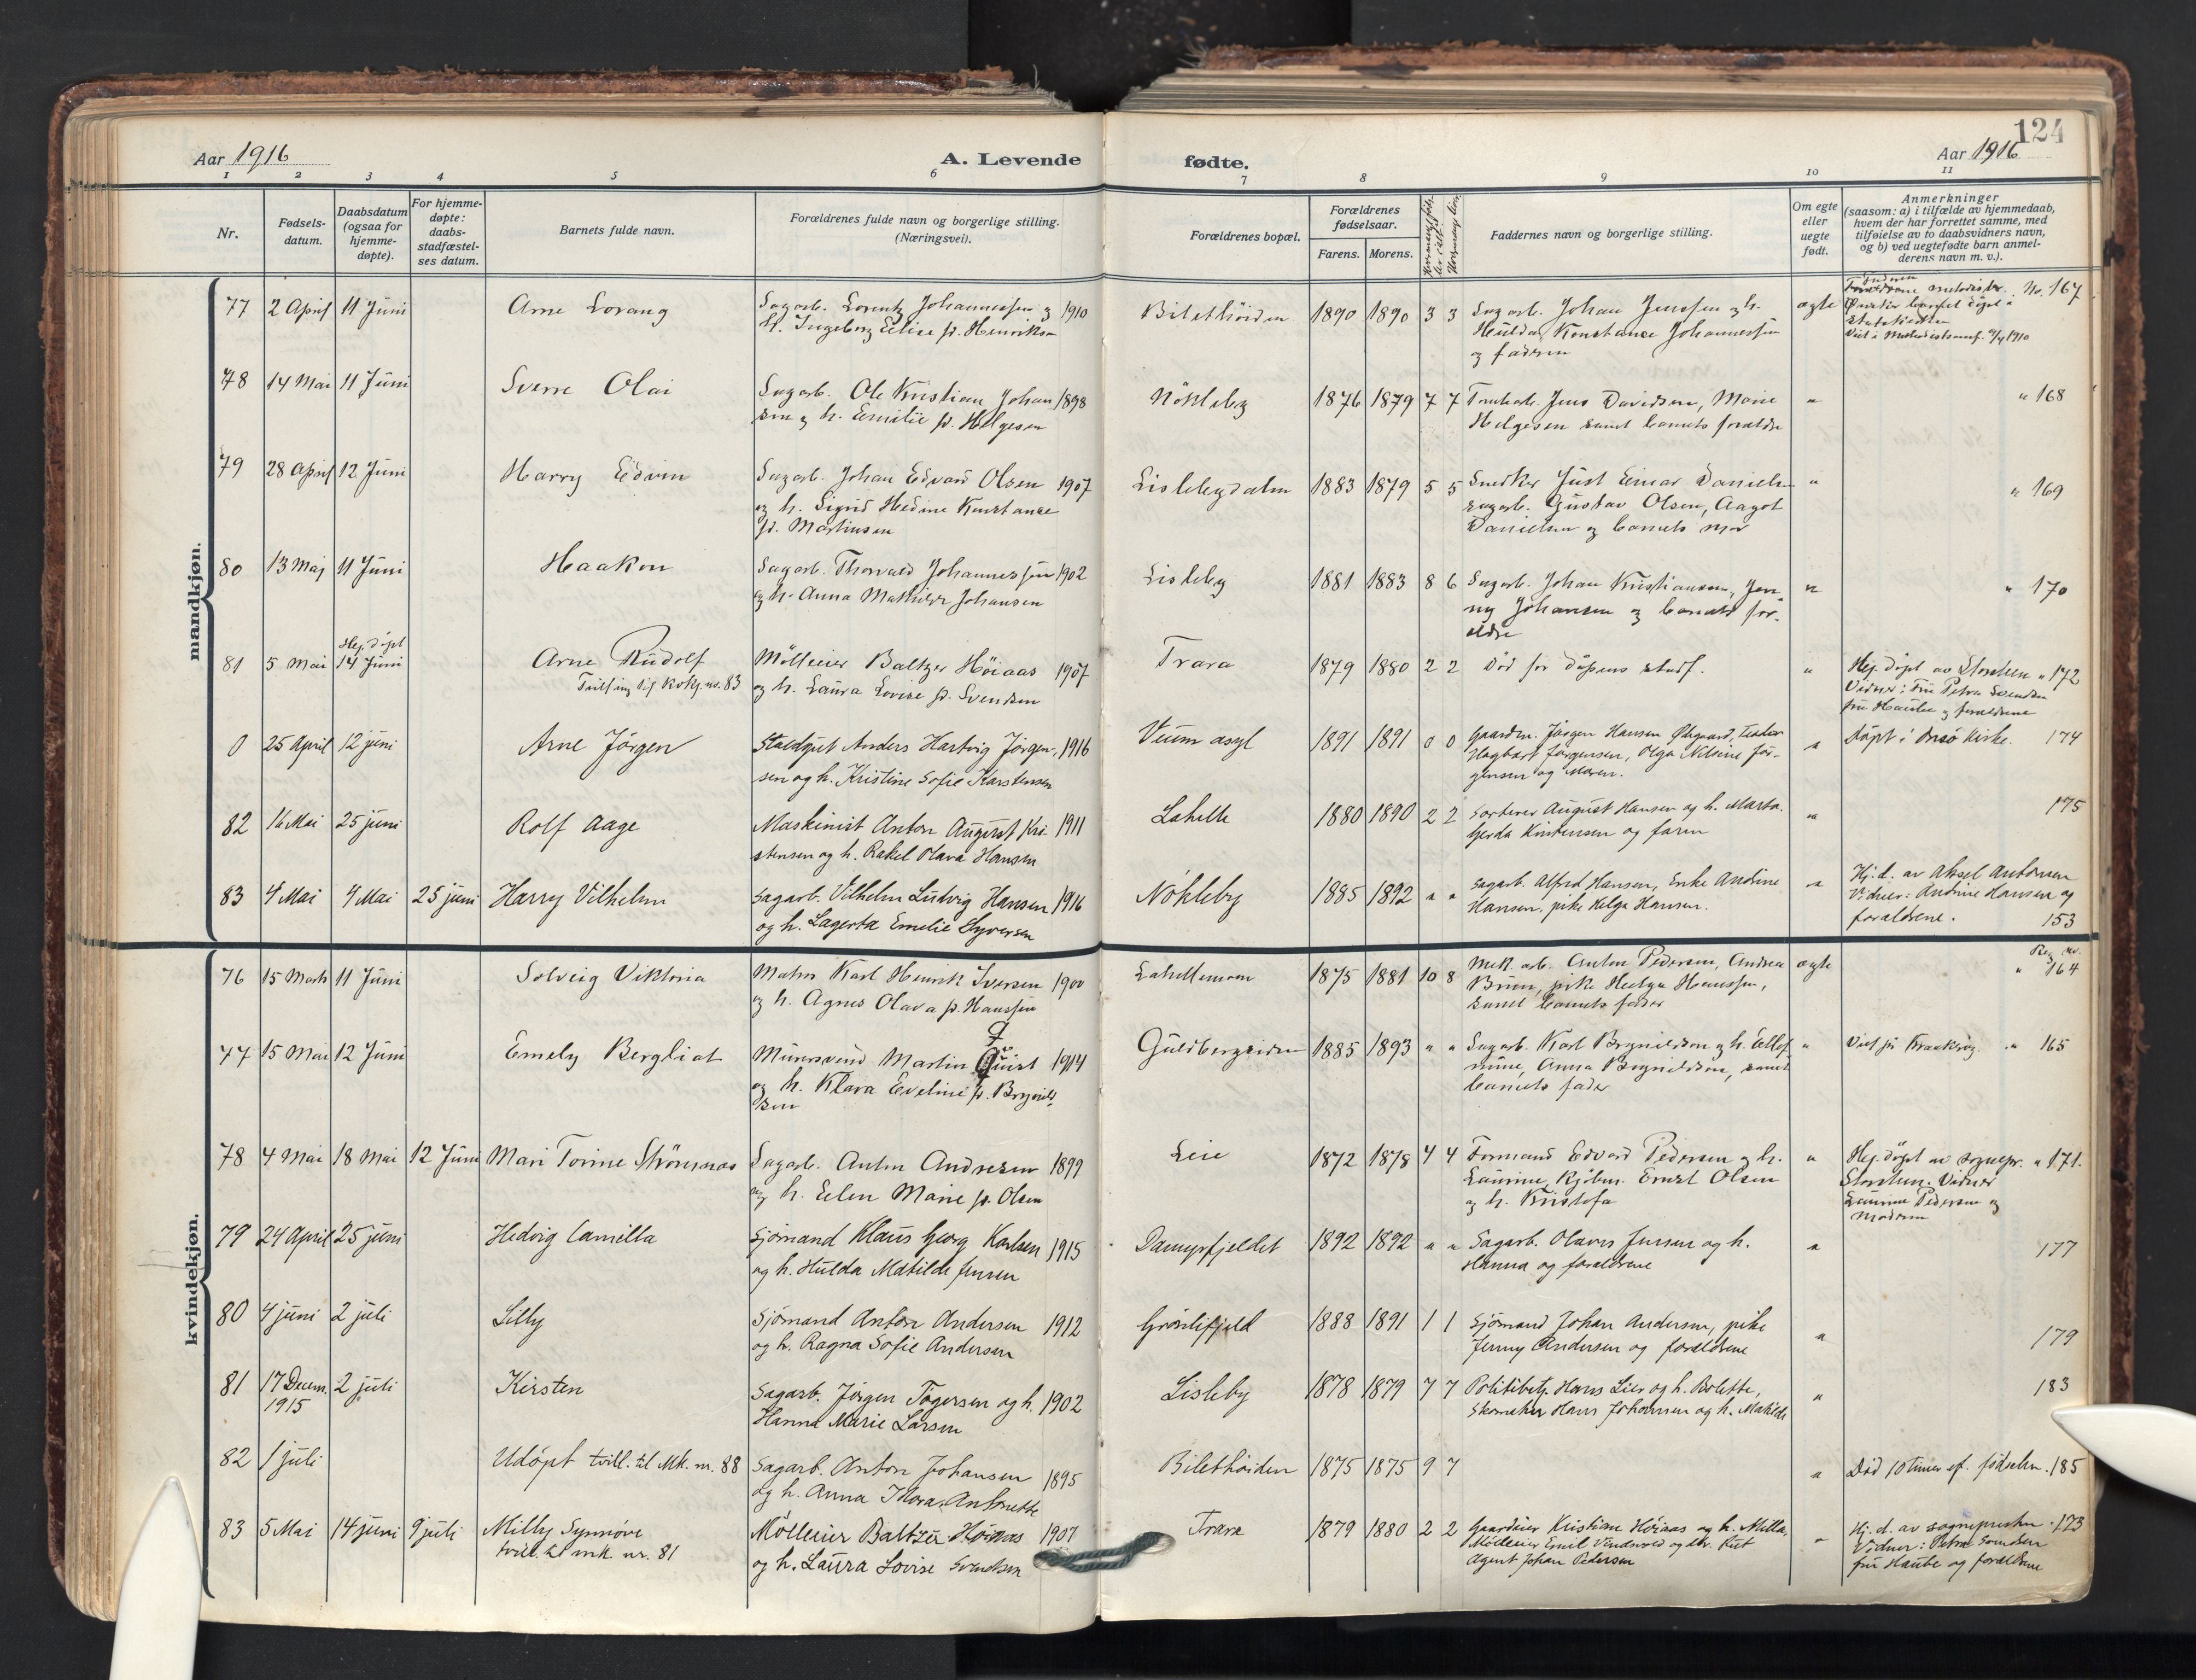 124
Aar 1916
A. Levende
fødte.
Aar 1916
1 2 3 4 5 6 7 8 9 10 11
Nr.
Fødsels-
datum.
Daabsdatum
(ogsaa for
hjemme-
døpte).
For hjemme-
døpte:
daabs-
stadfæstel-
ses datum.
Barnets fulde navn.
Forældrenes fulde navn og borgerlige stilling.
(Næringsvei).
Forældrenes bopæl.
Forældrenes
fødselsaar.
Farens. Morens.
Faddernes navn og borgerlige stilling.
Om egte
eller
uegte
født.
Anmerkninger
(saasom: a) i tilfælde av hjemmedaab,
hvem der har forrettet samme, med
tilføielse av to daabsvidners navn,
og b) ved uegtefødte barn anmel-
derens navn m. v.).
mandkjøn.
77 2 April 11 Juni Arne Lorang
Sagarb. Lorentz Johannessen og 1910
H. Ingeborg Elise f. Henriksen
1890 1890 3 3
Sagarb. Johan Jenssen og h.
Hulda, Konstanse Johannessen
og faderen
ægte
No. 167
78 14 Mai 11 Juni Sverre Olai
Sagarb. Ole Kristian Johan 1898
sen og h. Emilie f. Helgesen
Nökleby 1876 1879 7 7
Jens Davidsen, Marie
Helgesen samt barnets forældre
" " 168
79 28 April 12 Juni Harry Edvin
Sagarb. Johan Edvard Olsen 1907
og h. Sigrid Hedine Konstanse
f. Martinsen
Lislebydalen 1883 1879 5 5
Snedker Just Einar Daniels-
sagarb. Gustav Olsen, Aagot
Danielsen og barnets mor
" " 169
80 13 Maj 11 Juni Haakon
Sagarb. Thorvald Johannessen 1902
og h. Anna Mathilde Johansen
Lisleby 1881 1883 8 6
Sagarb. Johan Kristiansen, Jen-
ny Johansen og barnets for-
ældre
" " 170
81 5 Mai Hej. döpt
14 Juni
Arne Rudolf
Tvilling til kvkj. nr. 83
Mölleeier Baltzer Höiaas 1907
og h. Laura Lovise f. Svendsen
Trara 1879 1880 2 2
Död för daapens stadf.
"
Hej. döpt av Storsteen " 172
Vidner: Fru Petra Svendsen
fru Haube og forældrene
0 25 April 12 juni Arne Jörgen
Staldgut Anders Hartvig Jörgen- 1916
sen og h. Kristine Sofie Karstensen
Veum asyl 1891 1891 0 0
Gaardbr. Jörgen Hansen
Hagbart Jörgensen, Olga Nilsine Jör-
gensen og Moren.
"
Döpt i Onsö kirke. 174
82 16 Mai 25 juni Rolf Aage
Maskinist Anton August Kri 1911
stensen og h. Rakel Olava Hansen
Lahelle 1880 1890 2 2
Sorterer August Hansen og h. Marta.
Gerda Kristensen og faren
" 175
83 4 Mai 4 Mai 25 juni Harry Vilhelm
Sagarb. Vilhelm Ludvig Hansen 1916
og h. Lagerta Emelie Syversen
Nökleby 1885 1892 " "
Sagarb. Alfred Hansen, Enke Andrine
Hansen, pike Helga Hansen.
"
Hj. d. av Aksel Antonsen
Vidner: Andrine Hansen og
forældrene. 153
kvindekjøn.
76 15 Marts 11 Juni Solveig Viktoria
Matros Karl Henrik Iversen 1900
og h. Agnes Olava f. Hanssen
Lahellemoen 1875 1881 10 8
Mek. arb. Anton Pedersen, Andrea
Bruun, pike Helga Hanssen,
samt barnets fader
ægte
Reg. nr.
" 164
77 15 Mai 12 Juni Emely Bergliot
Murersvend Martin Quist 1914
og h. Klara Eveline f. Brynild-
sen
Guldbergsiden 1885 1893 " "
Sagarb. Karl Brynildsen og h. Ellef-
mine, Anna Brynildsen, samt
barnets fader
"
" 165
78 4 Mai 18 Mai 12 Juni Mari Torine Strömnæs
Sagarb. Anton Andresen 1899
og h. Elen Marie f. Olsen
Leie 1872 1878 4 4
Formand Edvard Pedersen og h.
Laurine, Kjöbm. Ernst Olsen
og h. Kristofa
"
Hej. döpt av sognepr. " 171.
Storsteen. Vidner
Laurine Pedersen og
moderen
79 24 April 25 juni Hedvig Camilla
Sjömand Klaus Georg Karlsen 1915
og h. Hulda Matilde Jensen
Dampsfjeldet 1892 1892 " "
Sagarb. Olaves Jensen og h.
Hanna og forældrene
" 177
80 4 juni 2 juli Lilly
Sjömand Anton Andersen 1912
og h. Ragna Sofie Andersen
Grönlifjeld 1888 1891 1 1
Sjömand Johan Andersen, pike
Jenny Andersen og forældrene
" 179
81 17 Decem. 2 juli
1915
Kirsten
Sagarb. Jörgen Tögersen og h. 1902
Hanna Marie Larsen
Lisleby 1878 1879 7 7
Politibetj. Hans Lier og h. Bolette,
Skomaker Hans Johansen og h. Matilde
" 183
82 1 juli Udöpt tvill. til Mk. nr. 88
Sagarb. Anton Johansen 1895
og h. Anna Thora Antonette
1875 1875 9 7
"
Död 10 timer ef. födselen. 185
83 5 Mai 14 juni 9 juli Milly Synnöve
tvill. til mk. nr. 81
Mölleeier Baltzer Höiaas 1907
og h. Laura Lovise Svendsen
Trara 1879 1880 2 2
Gaardeier Kristian Höiaas og h. Milla,
Mölleeier Emil
Agent Johan Pedersen
"
Hj. d. av sognepresten. 173
Vidner: Petra Svendsen
fru Haube og forældrene